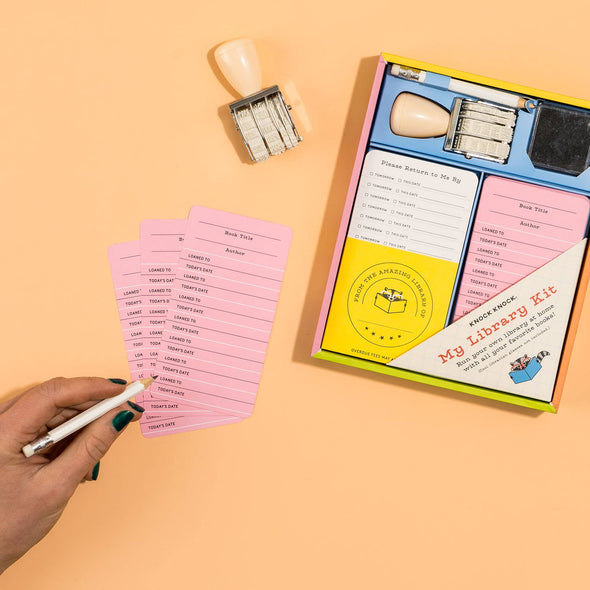 Please Return to Me By
TOMORROW THIS DATE
TOMORROW THIS DATE
TOMORROW THIS DATE
TOMORROW THIS DATE
TOMORROW THIS DATE
TOMORROW THIS DATE
FROM THE AMAZING LIBRARY OF
OVERDUE FEES MAY
Book Title
Author
LOANED TO
TODAY'S DATE
LOANED TO
TODAY'S DATE
LOANED TO
TODAY'S DATE
LOANED TO
TODAY'S DATE
KNOCK KNOCK.
My Library Kit
Run your own library at home
with all your favorite books!
(Cool librarian glasses not included.)
Book Title
Author
LOANED TO
TODAY'S DATE
LOANED TO
TODAY'S DATE
LOANED TO
TODAY'S DATE
LOANED TO
TODAY'S DATE
LOANED TO
TODAY'S DATE
LOANED TO
TODAY'S DATE
LOANED TO
TODAY'S DATE